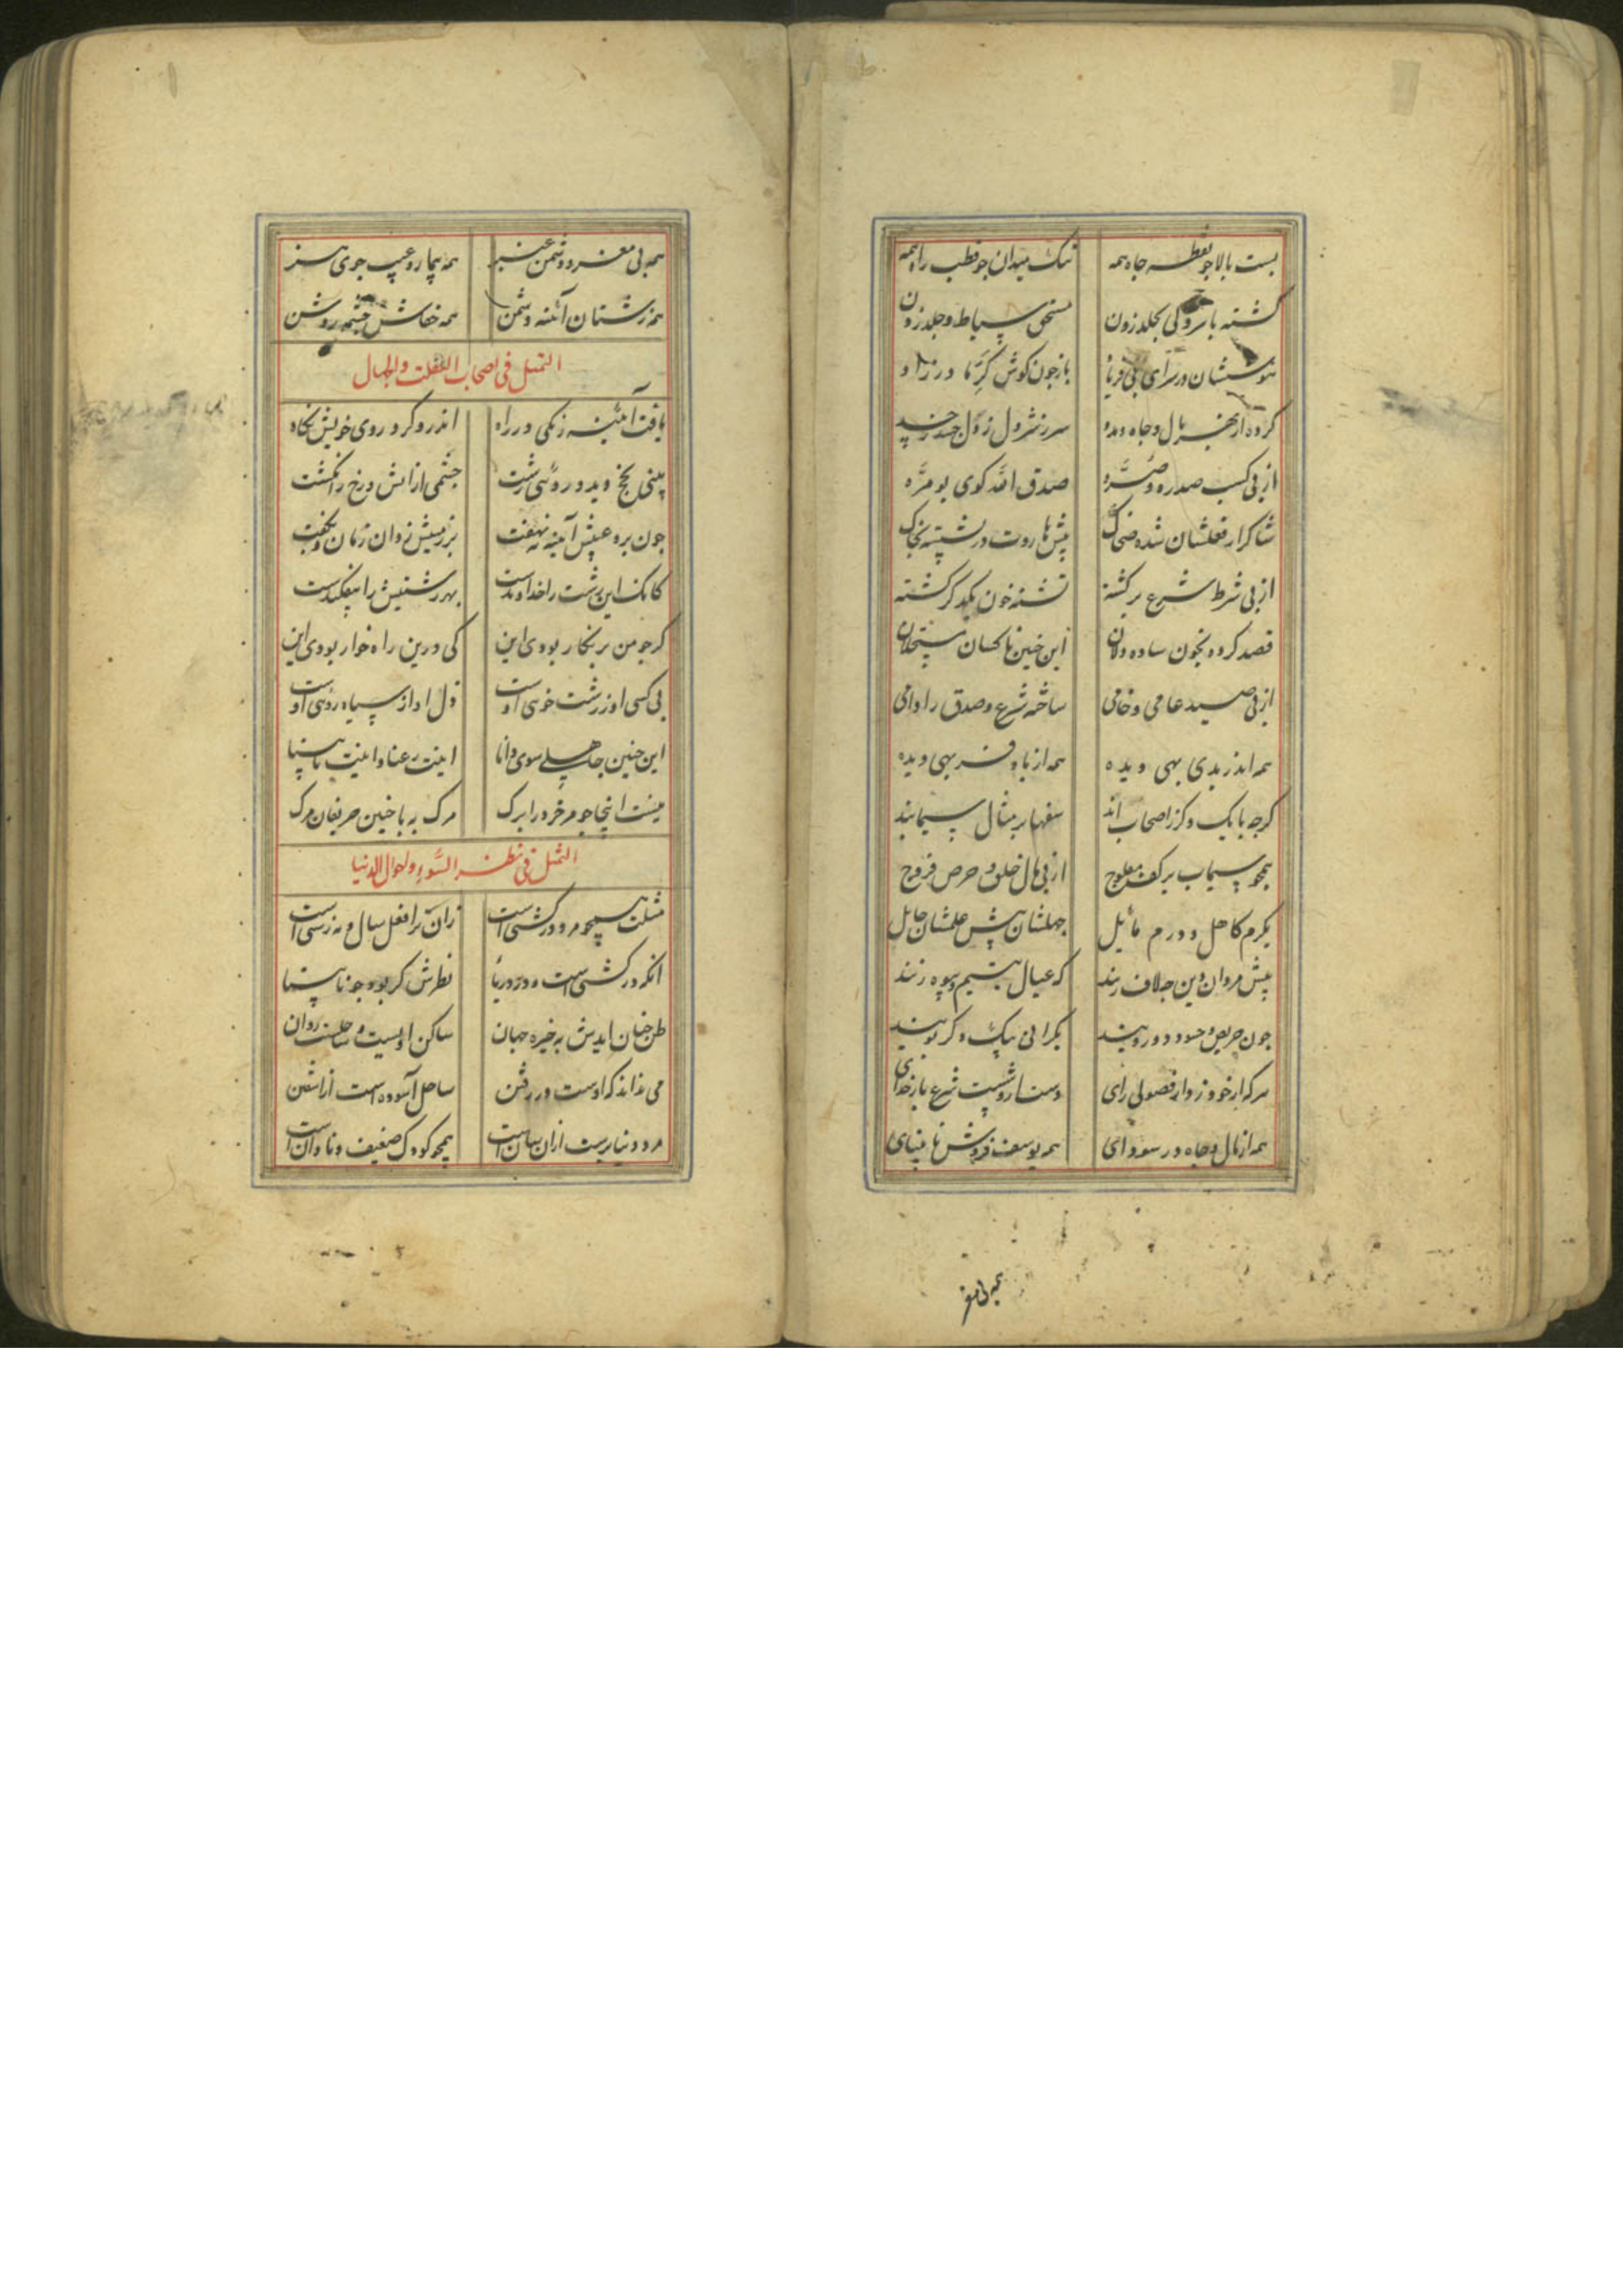 پست بالا چو نقطه جاه همه تنک میدان چو قطب راه همه
گشته با سروکی بجلد زدن مستحق سیاط و جلد زدن
هوششان در سرای بی فریاد باز چون کوش کر
کرده از بهر مال و جاه و بدو
از پی کسب صدره و صره صدق الله کوی بو مره
شاکر از فعلشان شده ضحاک پیش هاروت در نشسته بخاک
از پی شرط شرع برگشته تشنه خون یکدگر گشته
قصد کرده بخون ساده دلان این چنین ناکسان مستحلان
از پی صید عامی و خامی ساخته شرع و صدق را دامی
همه اندر بدی بهی دیده همه از باد فربهی دیده
گرچه با یک دگر ز اصحاب اند سفها بر مثال سیمابند
همچو سیماب بر کف مفلوج از پی مال خلق و حرص فروج
بکرم کاهل و درم مائل جهلشان پیش علمشان حایل
پیش مردان دین چه لاف زنند که عیال یتیم و بیوه زنند
چون حریص و حسود و دو رویند بکرانی یک دگر پویند
هرکه از خود زد از فضولی رای دست او شست شرع بار خدای
همه از مال و جاه در سودای همه یوسف فروش نابینای
همه بی مغز
همه بی مغز و دشمن همه بیمار و عیب جوی هنر
همه زشتان آئنه دشمن همه خفاش چشمه روشن
التمثل فی اصحاب الغفلت والجهال
یافت آئینه زنگی در راه اندرو کرد روی خویش نگاه
بینی پخچ دید و روئی زشت چشمی از آتش و رخ ز انگشت
چون برو عیبش آینه نهفت بر زمینش زد آن زمان و بگفت
کانک این زشت را خداوندست بهر زشتیش را بیفکندست
گر چو من پر نگار بودی این کی درین راه خوار بودی این
بی کسی او ز زشت خوئی اوست ذل او از سیاه روئی اوست
این چنین جاهلی سوی دانا اینت رعنا و اینت نابینا
نیست اینجا چو مر خرد را برک مرک به با چنین حریفان مرک
التمثل فی نظر السوء و احوال الدنیا
مثلت همچو مرد در کشتی است زان ترا فعل سال و مه زشتی است
آنکه در کشتی است و در دریا نظرش کژ بود چو نابینا
ظن چنان آیدش بخیره چنان ساکن اوست و ساحلست روان
می نداند که اوست در رفتن ساحل آسوده است از آشفتن
مرد دنیا پرست ازان سانست همچو کودک ضعیف و نادانست